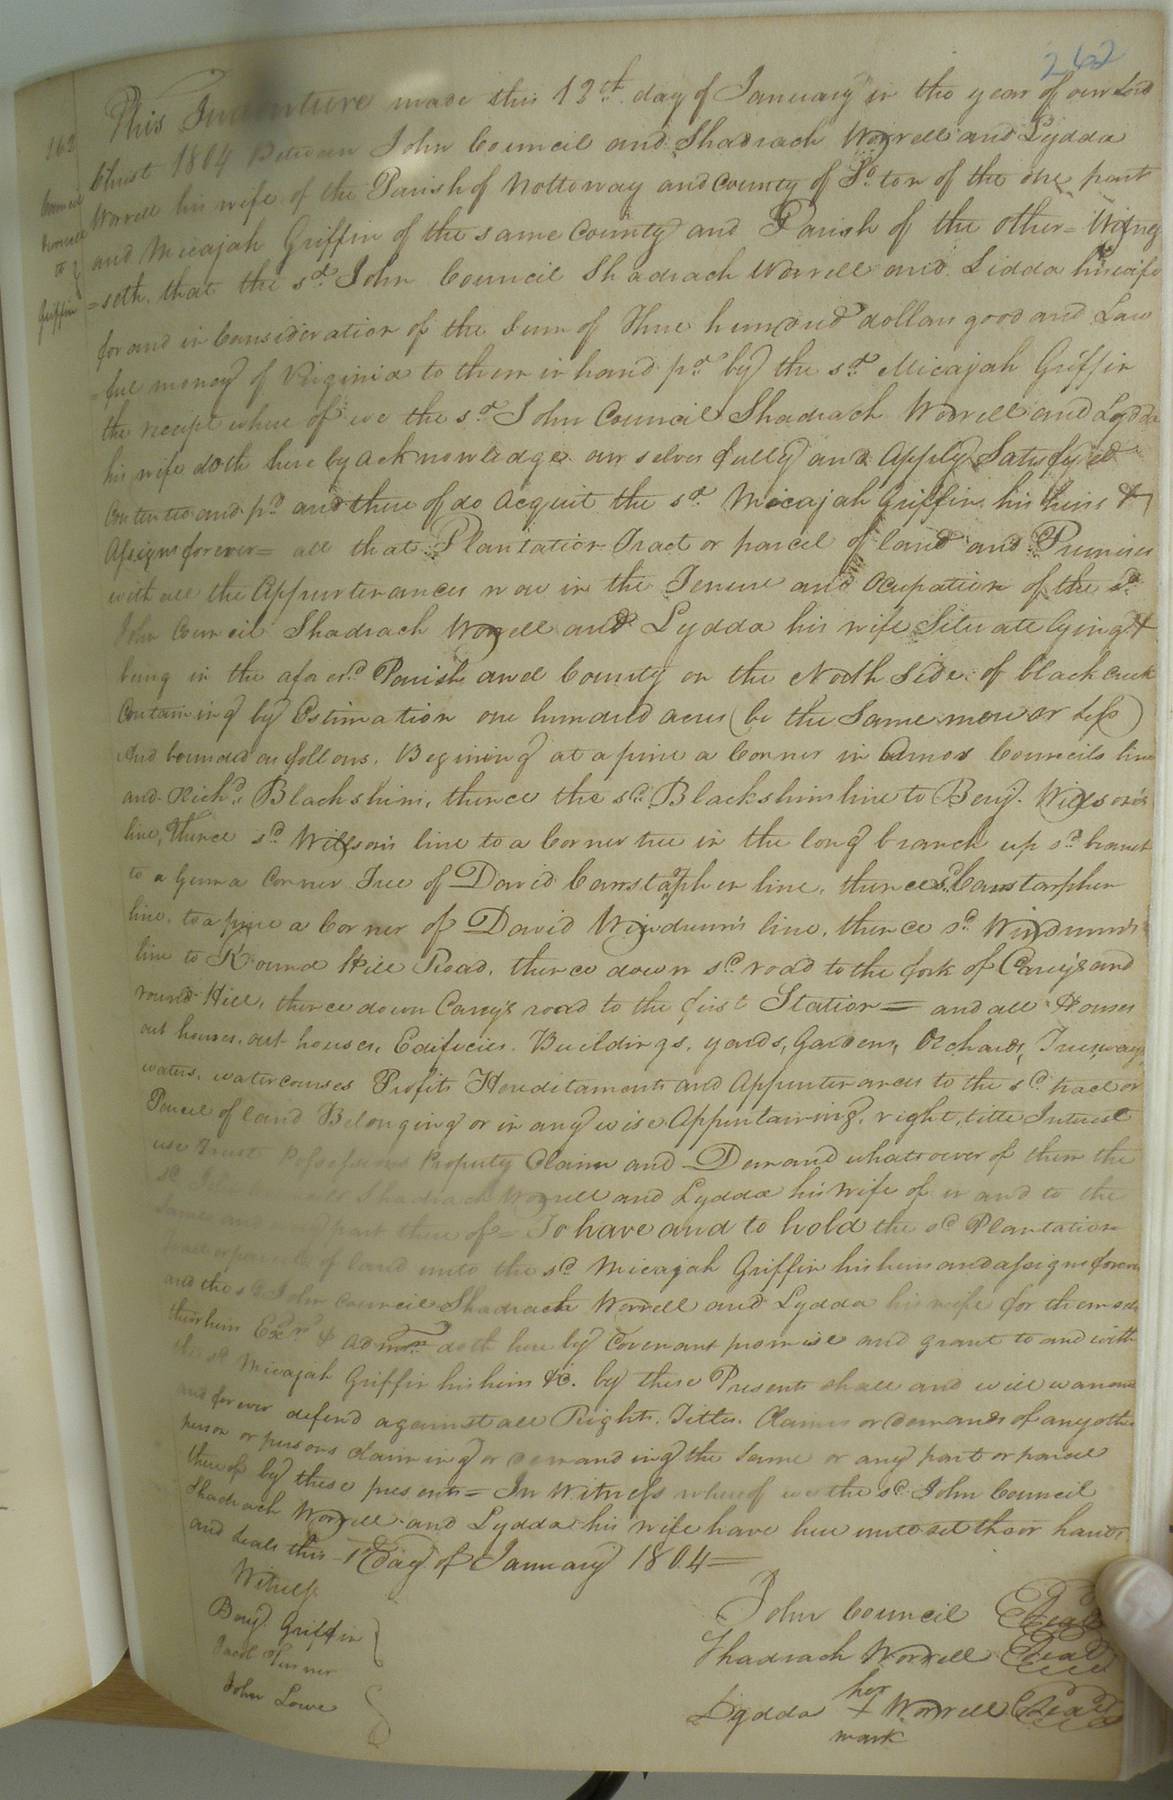 262
This Indenture made this 13th. day of January in the year of our Lord
162
Christ 1804 Between John Council and Shadrach Worrell and Lydda
Council
Worrell his wife of the Parish of Nottoway and County of So.ton of the one part
Worrell
and Micajah Griffin of the same County and Parish of the other = Witnes
to
=seth, that the sd. John Council Shadrach Worrell and Lidda his wife
Griffin
for and in Consideration of the Sum of Three hundred dollars good and Law
=ful money of Virginia to them in hand pd. by the sd. Micajah Griffin
the receipt where of we the sd. John Council Shadrach Worrell and Lydda
his wife doth here by acknowledge our selves fully and Apply Satisfyed
Contented and pd. and there of do Acquit the sd. Micajah Griffin his heirs &
Assigns forever = all that Plantation Tract or parcel of land and Premises
with all the Appurterances now in the Tenure and Ocupation of the sd.
John Council Shadrach Worrell and Lydda his wife Situate lying &
being in the afores.d Parish and County on the North Side of black Creek
Containing by Estimation one hundred acres (be the Same more or Less)
And bounded as follows. Begining at a pine a Corner in Amos Councils line
and Richd. Blackshins, thence the sd. Blackshins line to Benj. Willsons
line, thence sd. Willsons line to a Corner tree in the long branch up sd. branch
to a Gum a Corner Tree of David Carrstapher line, thence sd. Carrstarpher
line, to a pine a Corner of David Windrum's line, thence sd. Windrum's
line to Round Hill Road, thence down sd. road to the fork of Carey's and
round Hill, thence down Carey's road to the first Station = and all Houses
out houses, out houses, Edificies, Buildings, yards, Gardens, Orchards, Trees, ways
waters, watercourses Profits Hereditaments and Appurterances to the sd. tract or
Parcel of land Belonging or in any wise Appertaining, right, title Interest
use Trust Possessions Property Claim and Demand whatsoever of them the
sd. John Council Shadrach Worrell and Lydda his wife of in and to the
Same and every part there of = To have and to hold the sd. Plantation
Tract or parcel of land unto the sd. Micajah Griffin his heirs and assigns forever
and the sd. John Council Shadrach Worrell and Lydda his wife for themselv
their heirs Exrs. & Admrs. doth here by Covenant promise and grant to and with
the sd. Micajah Griffin his heirs &c. by these Presents shall and will warrant
and forever defend against all Rights, Titles, Claims or demands of any other
person or persons claiming or demanding the Same or any part or parcel
thereof by these presents = In Witness whereof we the sd. John Council
Shadrach Worrell and Lydda his wife have here unto set their hands
and Seals this 1 Day of January 1804 =
Witness
John Council Seal
Benj. Griffin
Shadrach Worrell Seal
Jacob Turner
her
John Lowe
Lydda X Worrell Seal
mark